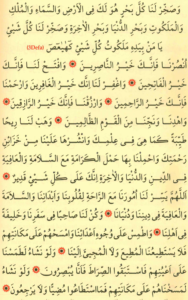 وَسَخِّرْ لَنَا كُلَّ بَحْرٍ هُوَ لَكَ فِي الْاَرْضِ وَالسَّمَاءِ وَالْمُلْكِ
وَالْمَلَكُوتِ وَبَحْرَ الدُّنْيَا وَبَحْرَ الْاٰخِرَةِ وَسَخِّرْ لَنَا كُلَّ شَيْءٍ
يَا مَنْ بِيَدِهِ مَلَكُوتُ كُلِّ شَيْءٍ كٓهٰيٰعٓصٓ
اُنْصُرْنَا فَاِنَّكَ خَيْرُ النَّاصِرِينَ وَافْتَحْ لَنَا فَاِنَّكَ
خَيْرُ الْفَاتِحِينَ وَاغْفِرْ لَنَا فَاِنَّكَ خَيْرُ الْغَافِرِينَ وَارْحَمْنَا
فَاِنَّكَ خَيْرُ الرَّاحِمِينَ وَارْزُقْنَا فَاِنَّكَ خَيْرُ الرَّازِقِينَ
وَاهْدِنَا وَنَجِّنَا مِنَ الْقَوْمِ الظَّالِمِينَ وَهَبْ لَنَا رِيحًا
طَيِّبَةً كَمَا هِيَ فِي عِلْمِكَ وَانْشُرْهَا عَلَيْنَا مِنْ خَزَائِنِ
رَحْمَتِكَ وَاحْمِلْنَا بِهَا حَمْلَ الْكَرَامَةِ مَعَ السَّلَامَةِ وَالْعَافِيَةِ
فِي الدِّينِ وَالدُّنْيَا وَالْاٰخِرَةِ اِنَّكَ عَلٰى كُلِّ شَيْءٍ قَدِيرٌ
اَللّٰهُمَّ يَسِّرْ لَنَا اُمُورَنَا مَعَ الرَّاحَةِ لِقُلُوبِنَا وَاَبْدَانِنَا وَالسَّلَامَةِ
وَالْعَافِيَةِ فِي دِينِنَا وَدُنْيَانَا وَكُنْ لَنَا صَاحِبًا فِي سَفَرِنَا وَخَلِيفَةً
فِي اَهْلِنَا وَاطْمِسْ عَلٰى وُجُوهِ اَعْدَائِنَا وَامْسَخْهُمْ عَلٰى مَكَانَتِهِمْ
فَلَا يَسْتَطِيعُونَ الْمُضِيَّ وَلَا الْمَجِيءَ اِلَيْنَا وَلَوْ نَشَاءُ لَطَمَسْنَا
عَلٰى اَعْيُنِهِمْ فَاسْتَبَقُوا الصِّرَاطَ فَاَنّٰى يُبْصِرُونَ وَلَوْ نَشَاءُ
لَمَسَخْنَاهُمْ عَلٰى مَكَانَتِهِمْ فَمَا اسْتَطَاعُوا مُضِيًّا وَلَا يَرْجِعُونَ